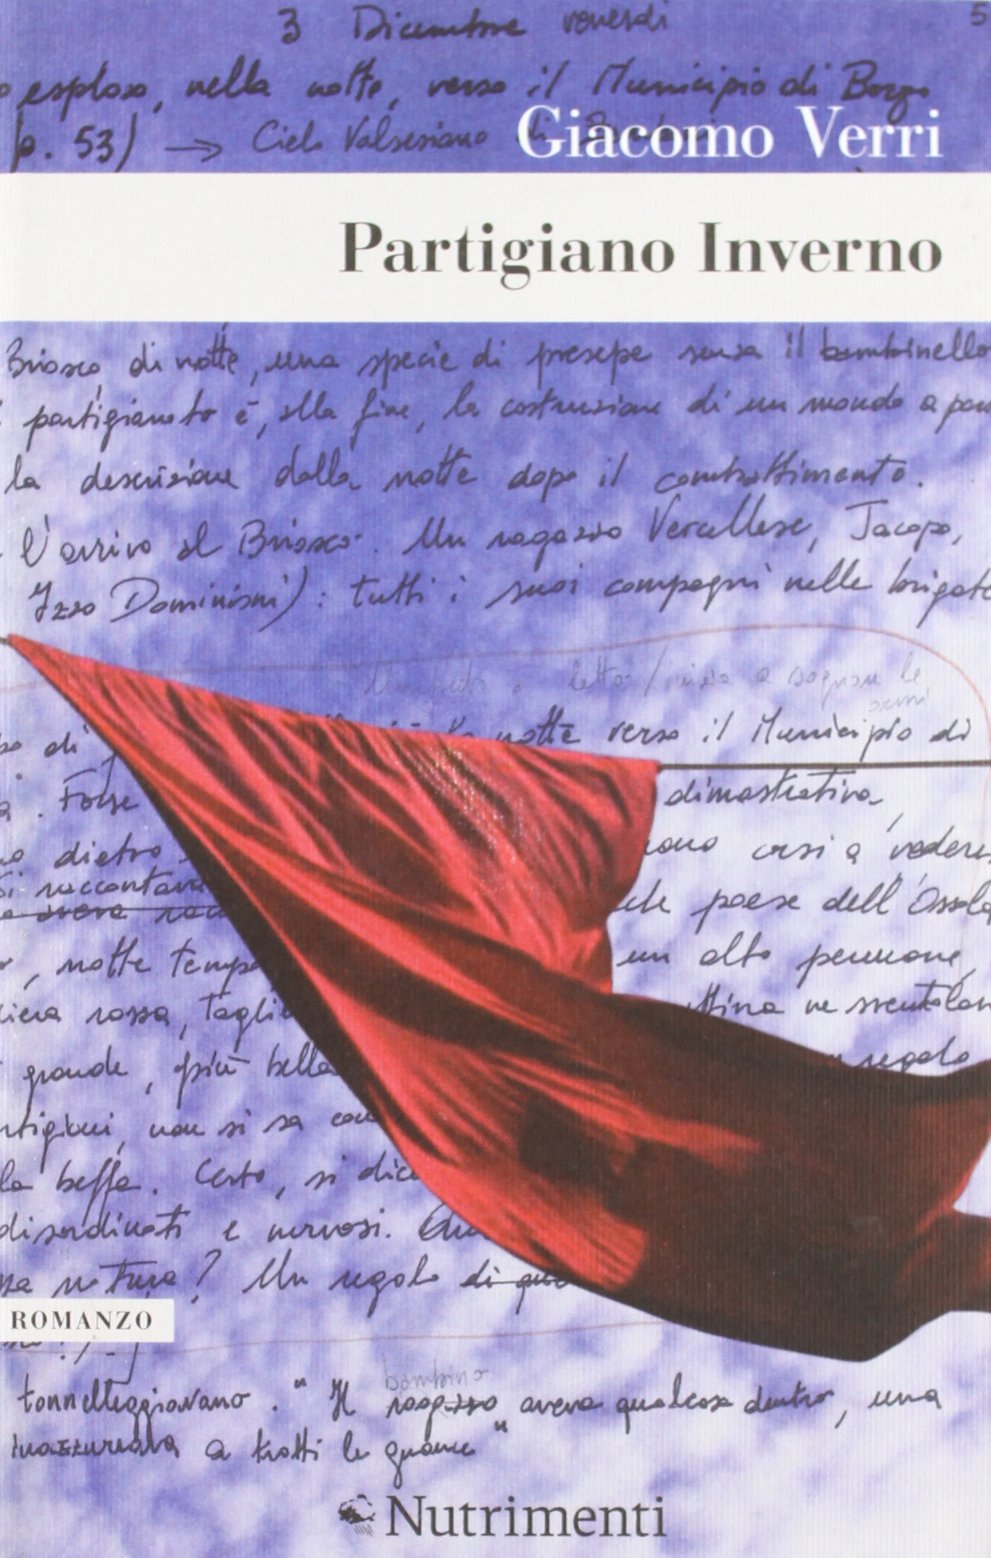 3 Dicembre venerdì 5
esploso, nella notte, verso il Municipio di Borgo
(p. 53) → Cielo Valsesiano di
Giacomo Verri
Partigiano Inverno
Briasco di notte, una specie di presepe senza il bambinello
partigianato è, alla fine, la costruzione di un mondo a
la descrizione della notte dopo il combattimento.
l'arrivo al Briasco. Un ragazzo Vercellese, Jacopo,
Izzo Dominioni): tutti i suoi compagni nelle brigate
a sognare le
armi
di notte verso il Municipio di
. Forse dimostrativa,
dietro corsi a vedere
si raccontava
aveva paese dell'Ossola
, notte tempo un alto pennone,
rossa, ne sventolava
grande, più bella regalo
, non si sa
la beffa. Certo, si
disordinati e nervosi.
natura? Un regalo di
ROMANZO
bambino
tonnelleggiavano. "Il ragazzo aveva qualcosa dentro, una
a tratti le guance"
Nutrimenti